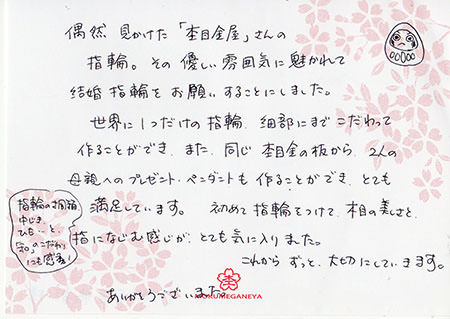 偶然 見かけた「杢目金屋」さんの
指輪。その優しい雰囲気に魅かれて
結婚指輪をお願いすることにしました。
世界に1つだけの指輪、細部にまでこだわって
作ることができ、また、同じ杢目金の板から、2人の
母親へのプレゼント・ペンダントも作ることができ、とても
満足しています。 初めて指輪をつけて、木目の美しさと、
指になじむ感じが、とても気に入りました。
これから ずっと、大切にしていきます。
ありがとうございました。
指輪の
ひも…と、
のこだわり
にも感動!
MOKUMEGANEYA